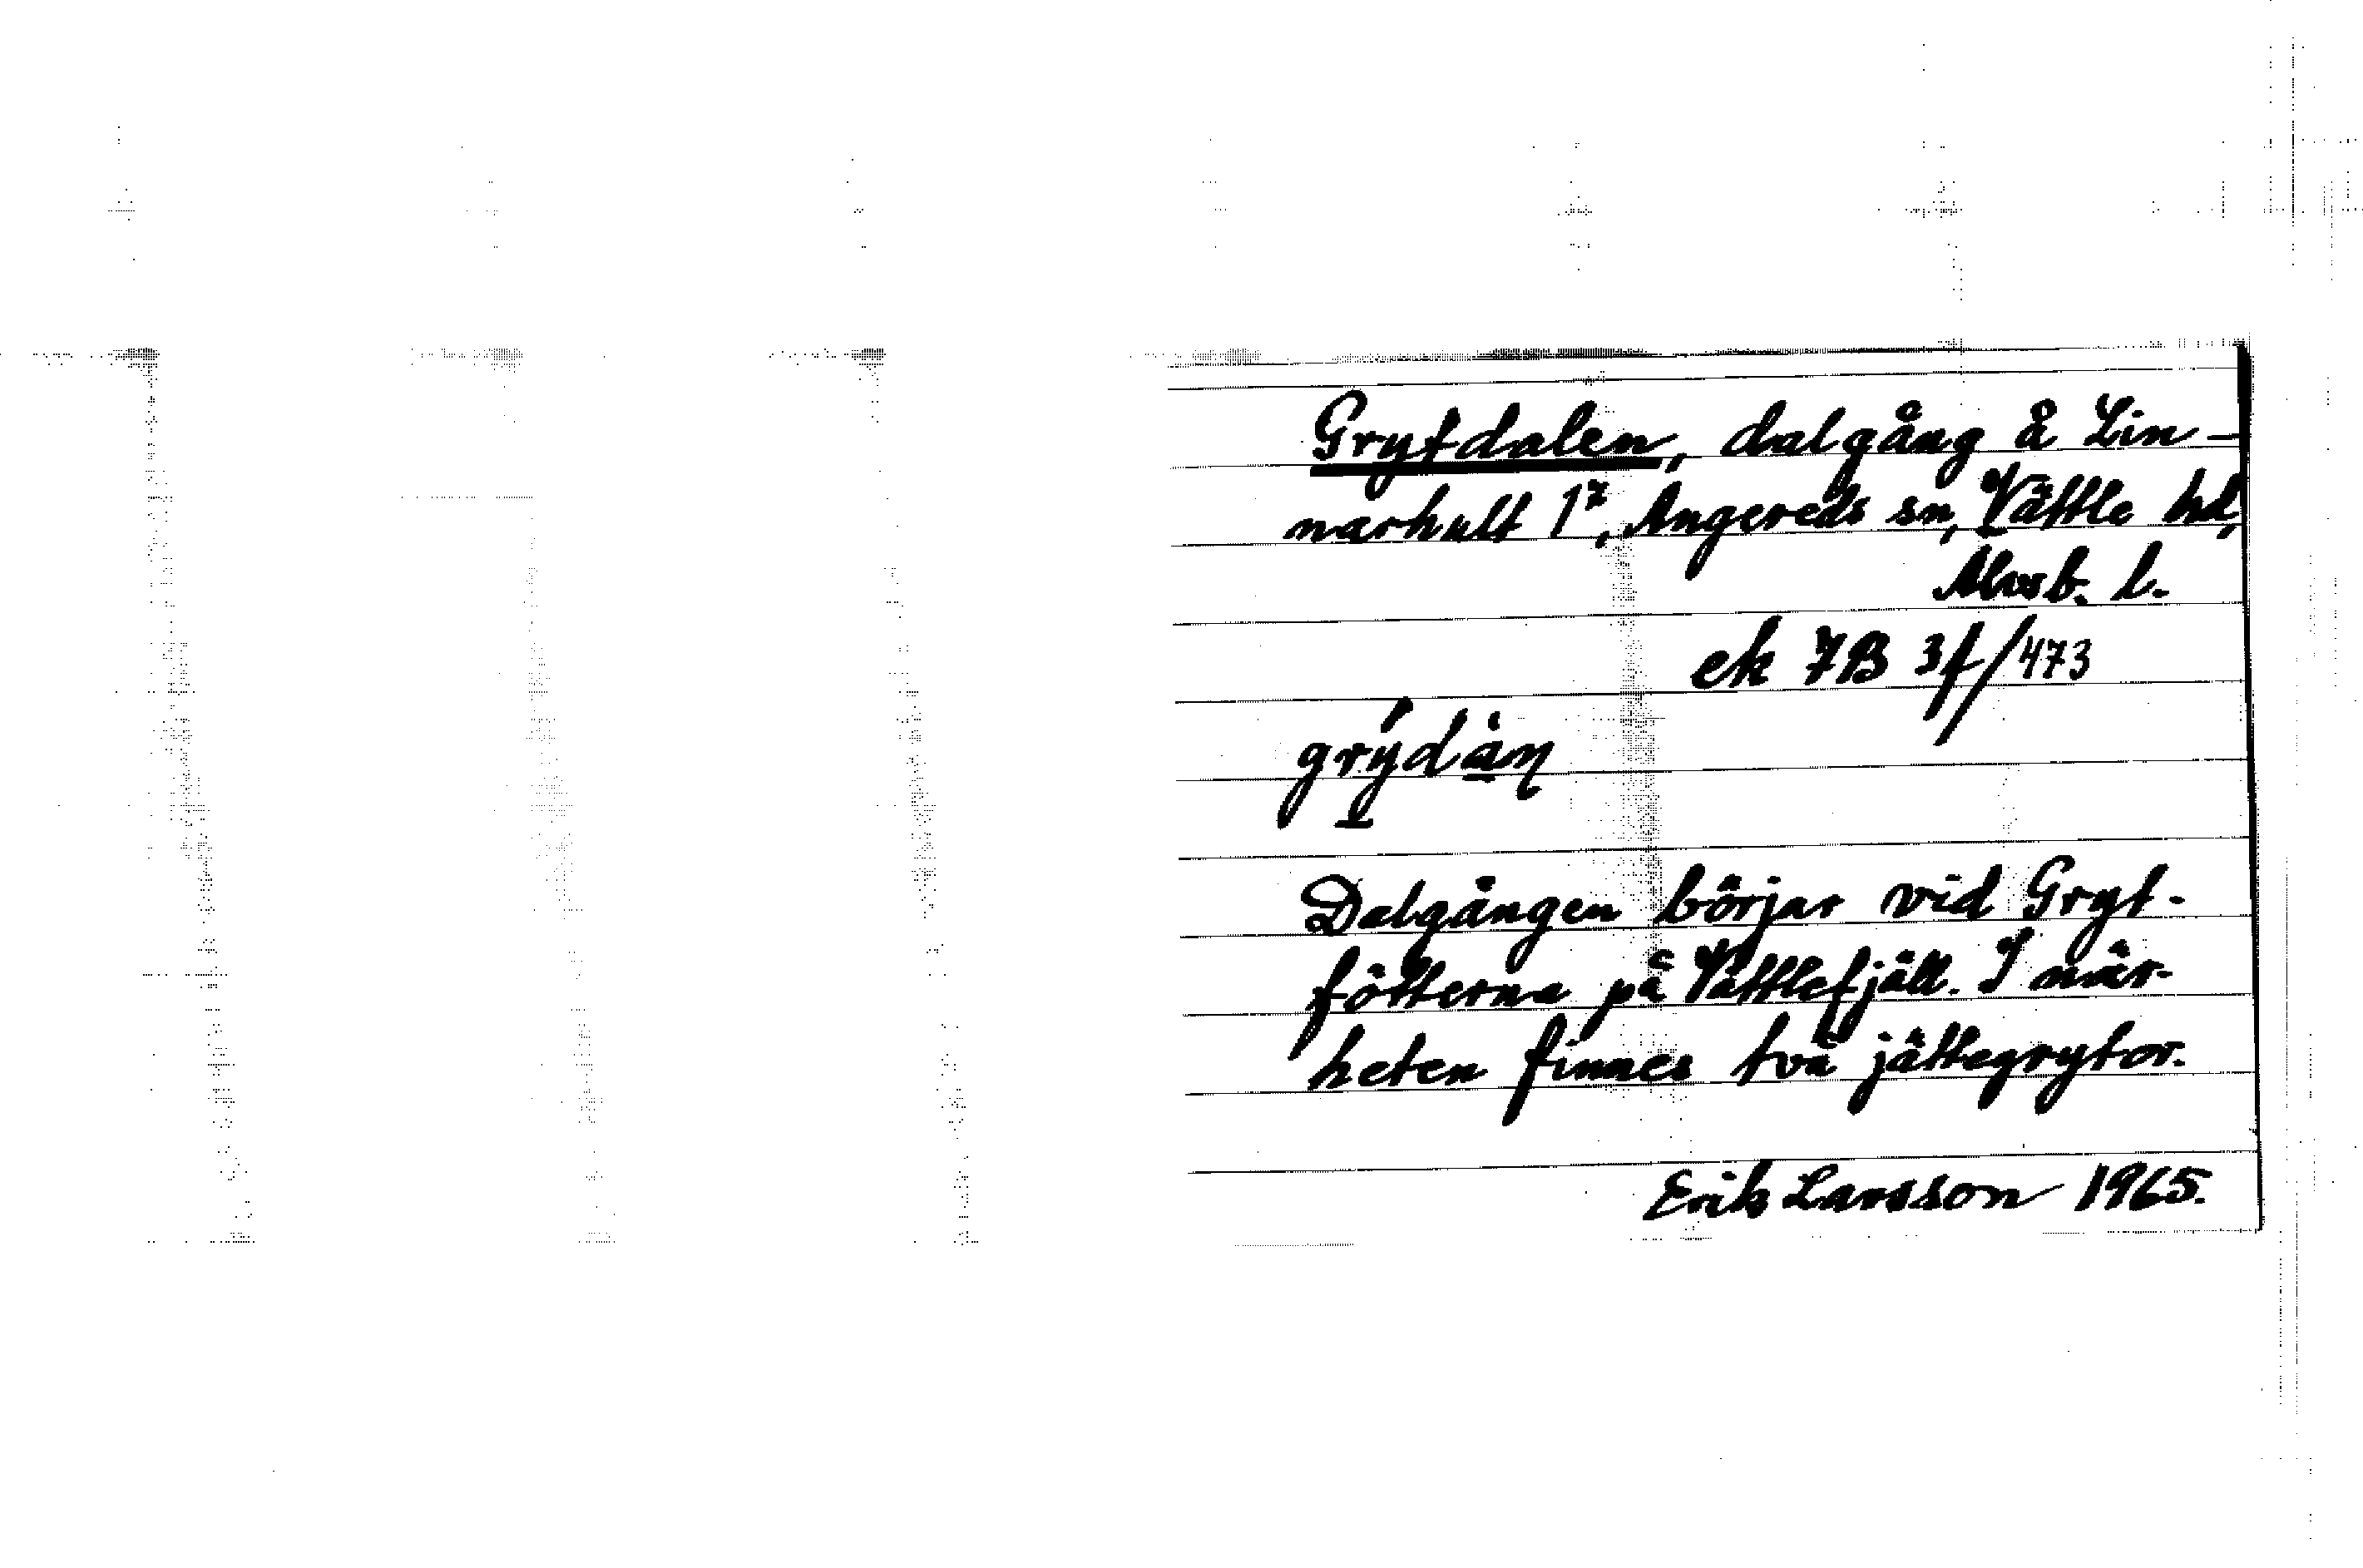 Grytdalen, dalgång å Lin-
narhult 1⁷, Angereds sn, Vättle hd,
Älvsb. l.
ek 7B 3f/473
Dalgången börjar vid Gryt-
fötterna på Vättlefjäll. I när-
heten finnes två jättegrytor.
Erik Larsson 1965.